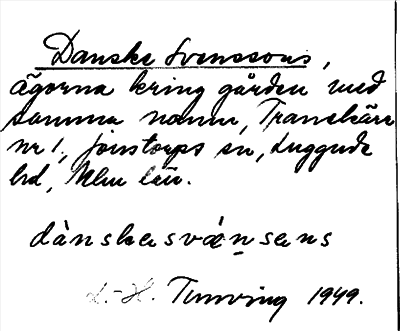 Danske Svenssons,
ägorna kring gården med
samma namn, Tranekärr
nr 1, Jonstorps sn, Luggude
hd, Mlm län.
dànskasvǽnsens
L.-H. Tunving 1949.